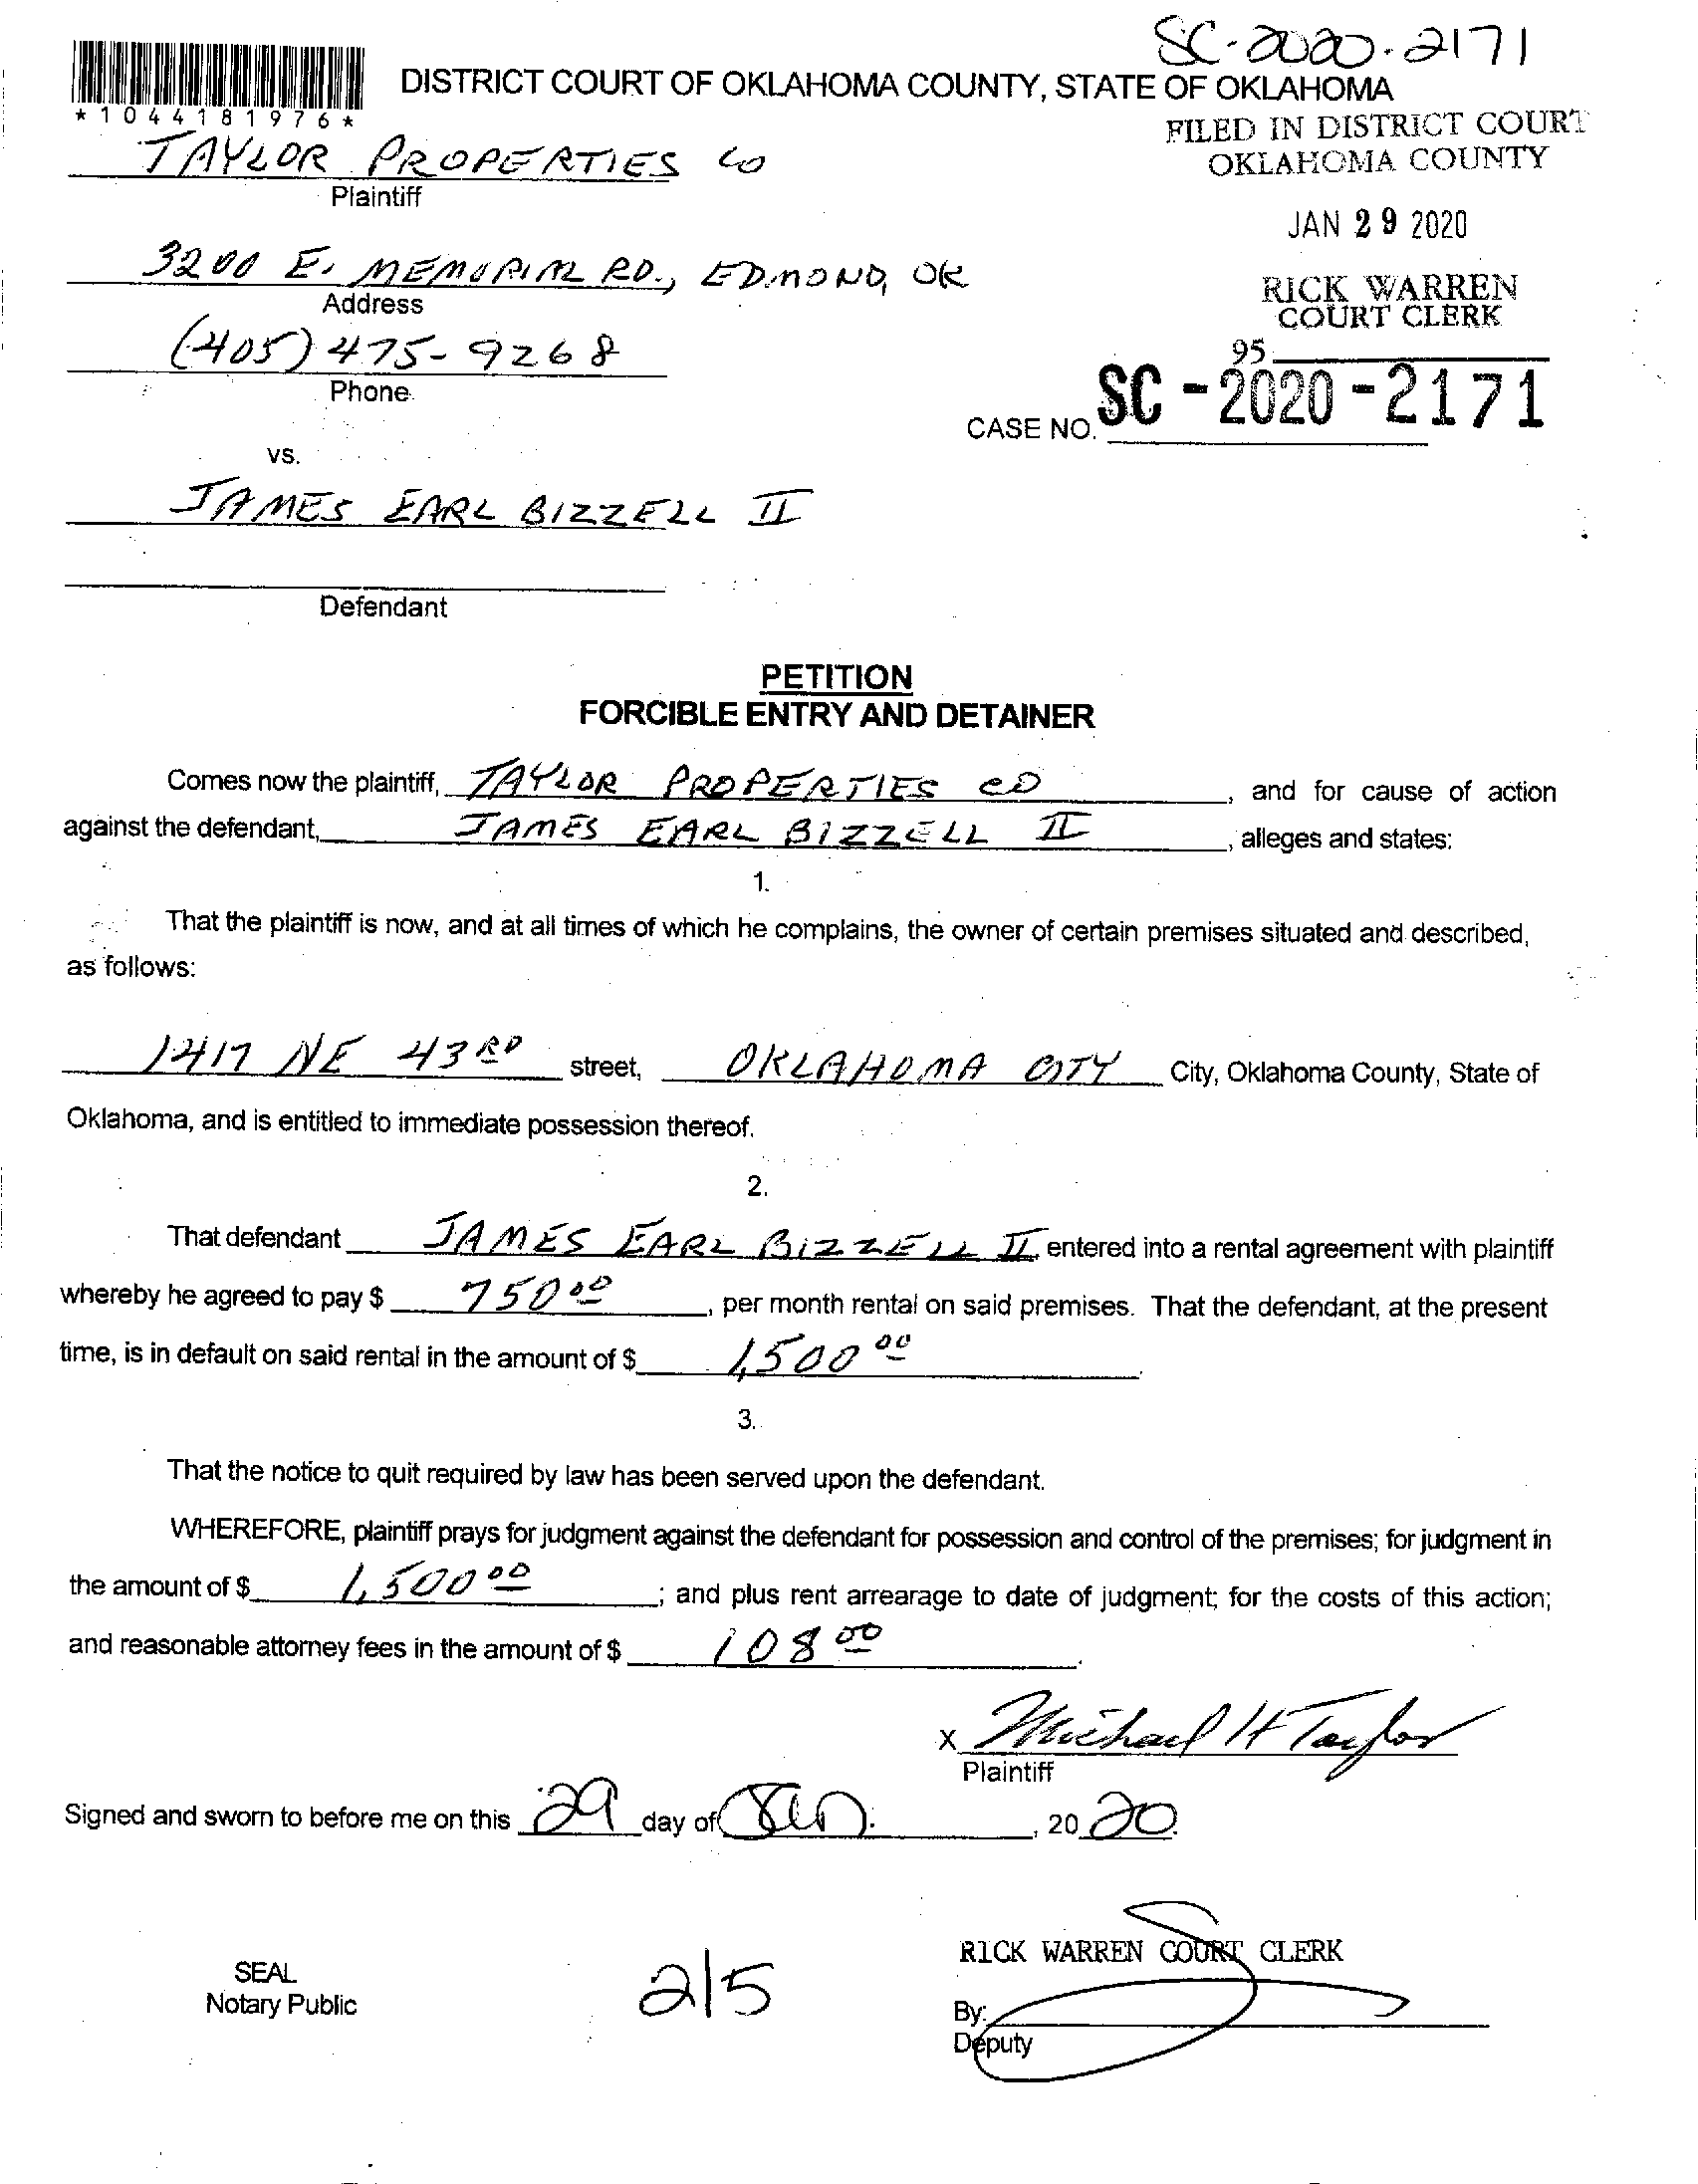 SC-2020-2171
DISTRICT COURT OF OKLAHOMA COUNTY, STATE OF OKLAHOMA
*1044181976*
FILED IN DISTRICT COURT
OKLAHOMA COUNTY
TAYLOR PROPERTIES CO
Plaintiff
JAN 29 2020
3200 E. MEMORIAL RD., EDMOND, OK
Address
RICK WARREN
COURT CLERK
(405) 475-9268
Phone
95
CASE NO. SC-2020-2171
vs.
JAMES EARL BIZZELL II
Defendant
PETITION
FORCIBLE ENTRY AND DETAINER
Comes now the plaintiff, TAYLOR PROPERTIES CO, and for cause of action
against the defendant, JAMES EARL BIZZELL II, alleges and states:
1.
That the plaintiff is now, and at all times of which he complains, the owner of certain premises situated and described,
as follows:
1417 NE 43RD street, OKLAHOMA CITY City, Oklahoma County, State of
Oklahoma, and is entitled to immediate possession thereof.
2.
That defendant JAMES EARL BIZZELL II entered into a rental agreement with plaintiff
whereby he agreed to pay $ 750 00, per month rental on said premises. That the defendant, at the present
time, is in default on said rental in the amount of $ 1,500 00.
3.
That the notice to quit required by law has been served upon the defendant.
WHEREFORE, plaintiff prays for judgment against the defendant for possession and control of the premises; for judgment in
the amount of $ 1,500 00; and plus rent arrearage to date of judgment; for the costs of this action;
and reasonable attorney fees in the amount of $ 108 00.
X Michael H Taylor
Plaintiff
Signed and sworn to before me on this 29 day of Jan., 2020.
RICK WARREN COURT CLERK
SEAL
Notary Public
2/5
By:
Deputy